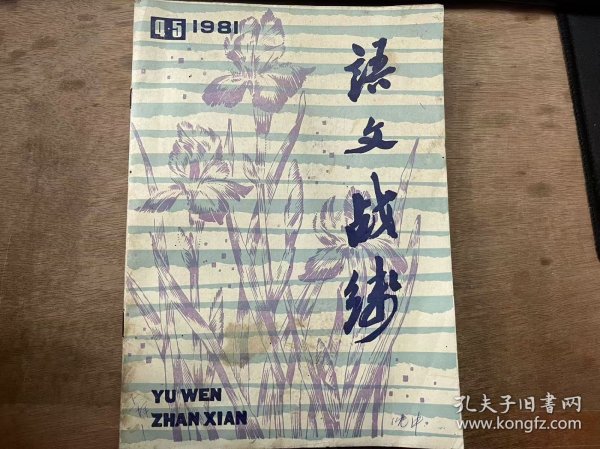 4-5 1981
语文战线
YU WEN
ZHAN XIAN
孔夫子旧书网
www.kongfz.com